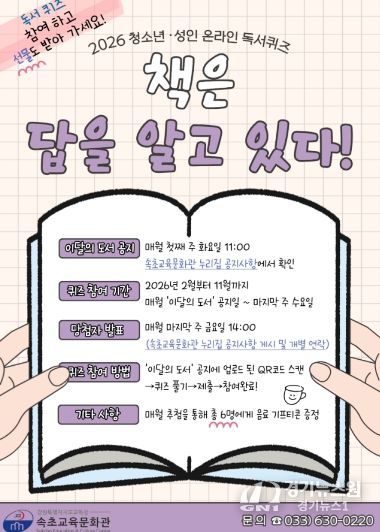 독서 퀴즈
참여 하고
선물도 받아 가세요!
2026 청소년·성인 온라인 독서퀴즈
책은
답을 알고 있다!
이달의 도서 공지 매월 첫째 주 화요일 11:00
속초교육문화관 누리집 공지사항에서 확인
퀴즈 참여 기간 2026년 2월부터 11월까지
매월 '이달의 도서' 공지일 ~ 마지막 주 수요일
당첨자 발표 매월 마지막 주 금요일 14:00
(속초교육문화관 누리집 공지사항 게시 및 개별 연락)
퀴즈 참여 방법 '이달의 도서' 공지에 업로드 된 QR코드 스캔
→퀴즈 풀기→제출→참여완료!
기타 사항 매월 추첨을 통해 총 6명에게 음료 기프티콘 증정
강원특별자치도교육청
속초교육문화관
문의 ☎ 033) 630-0220
GN1
경기뉴스원
경기뉴스1